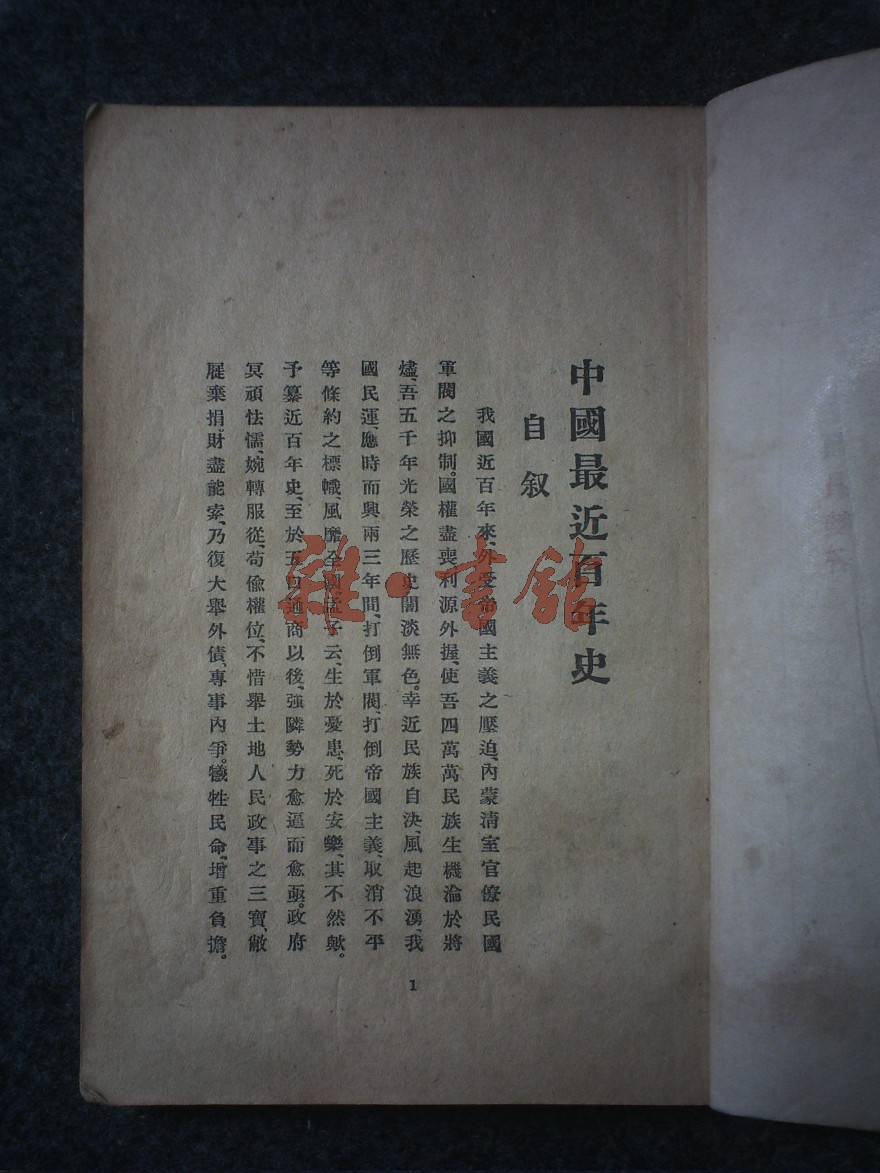 中國最近百年史
自叙
我國近百年來、外受帝國主義之壓迫、內蒙淸室官僚民國
軍閥之抑制。國權盡喪、利源外握、使吾四萬萬民族生機淪於將
燼、吾五千年光榮之歷史闇淡無色。幸近民族自決、風起浪湧、我
國民運、應時而興兩三年間、打倒軍閥、打倒帝國主義、取消不平
等條約之標幟、風靡全國、孟子云、生於憂患、死於安樂、其不然歟。
予纂近百年史、至於五口通商以後、強隣勢力愈逼而愈亟。政府
冥頑怯懦、婉轉服從、苟偷權位、不惜舉土地人民政事之三寶、敝
屣棄捐。財盡能索、乃復大舉外債、專事內爭。犧牲民命、增重負擔。
1
雜·書館